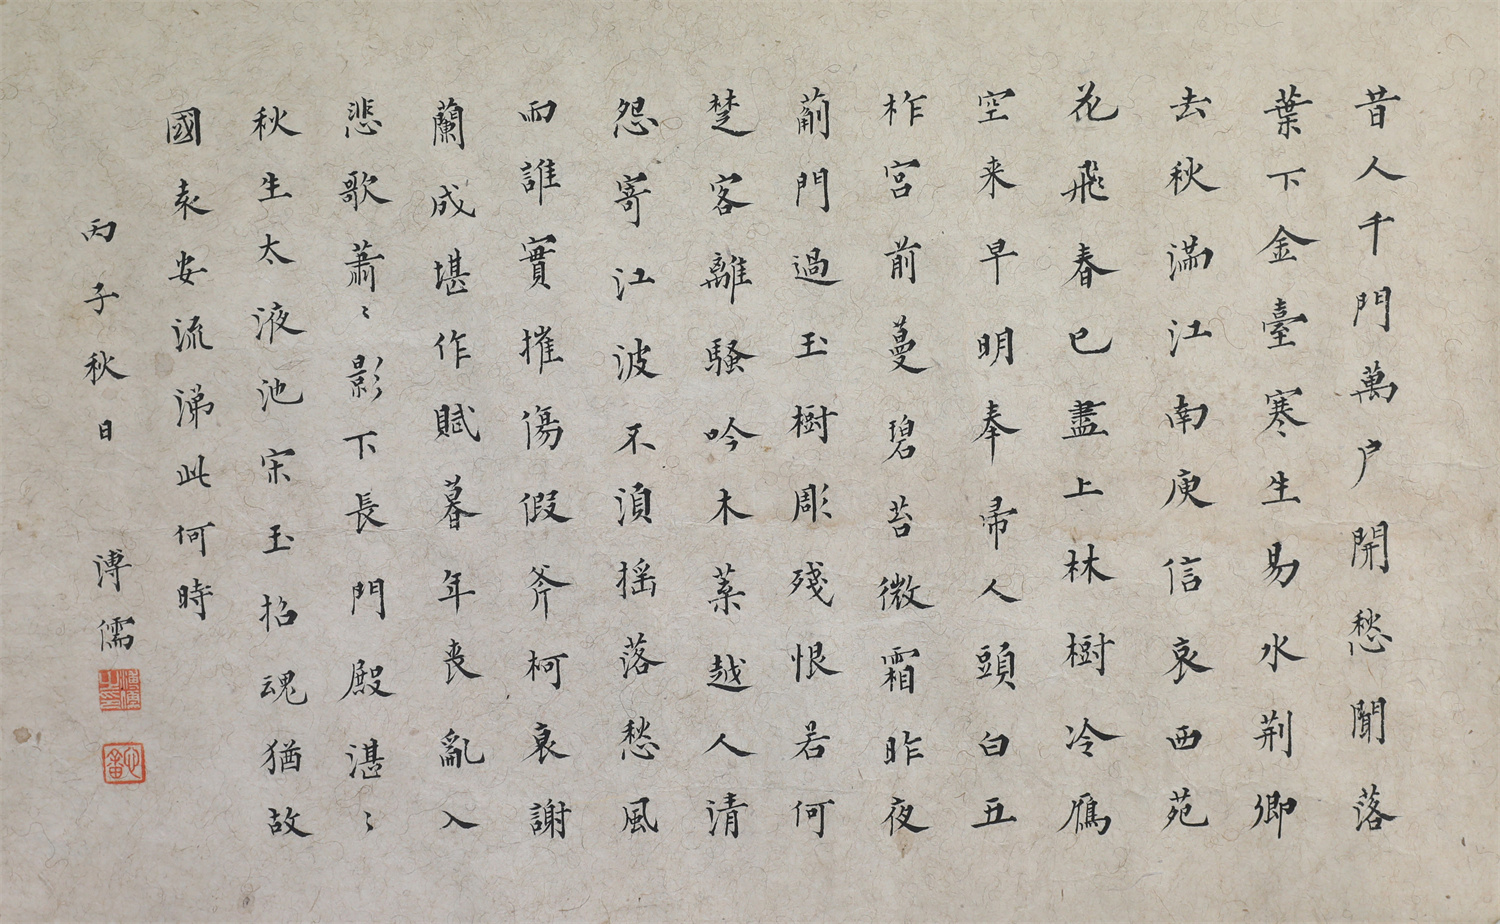 昔人千門萬户開愁聞落
葉下金臺寒生易水荆卿
去秋滿江南庾信哀西苑
花飛春已盡上林樹冷鴈
空来早明奉帚人頭白五
柞宮前蔓碧苔微霜昨夜
薊門過玉樹彫殘恨若何
楚客離騷吟木葉越人清
怨寄江波不湏摇落愁風
雨誰實摧傷假斧柯哀謝
蘭成堪作賦暮年喪亂入
悲歌蕭〻影下長門殿湛〻
秋生太液池宋玉招魂猶故
國袁安流涕此何時
丙子秋日
溥儒